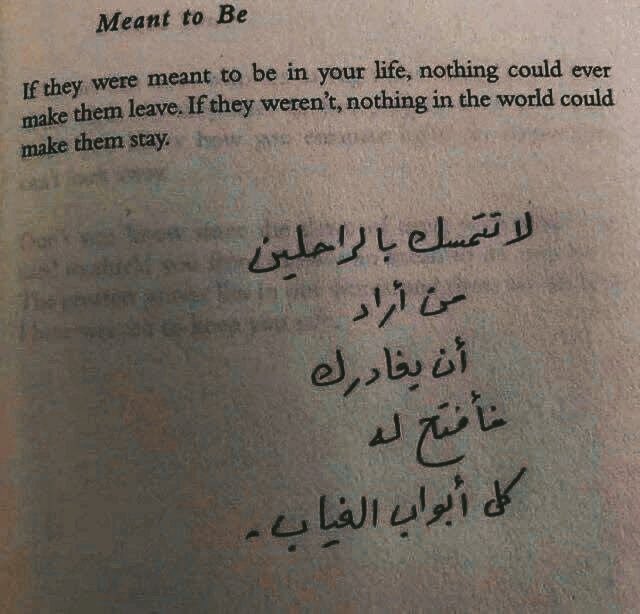 Meant to Be
If they were meant to be in your life, nothing could ever
make them leave. If they weren't, nothing in the world could
make them stay.
لا تتمسك بالراحلين
من أراد
أن يغادرك
فأفتح له
كل أبواب الغياب .